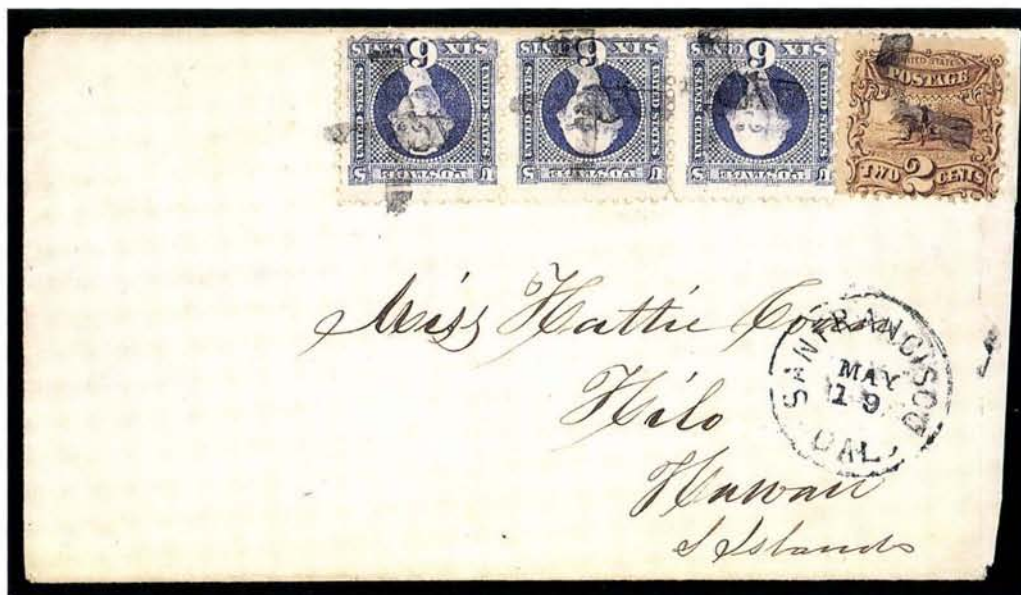 SIX CENTS 6
UNITED STATES
U S POSTAGE
SIX CENTS 6
UNITED STATES
U S POSTAGE
SIX CENTS 6
UNITED STATES
U S POSTAGE
UNITED STATES
POSTAGE
TWO 2 CENTS
Miss Hattie
Hilo
Hawaii
S Islands
SAN FRANCISCO
MAY
19
CAL.